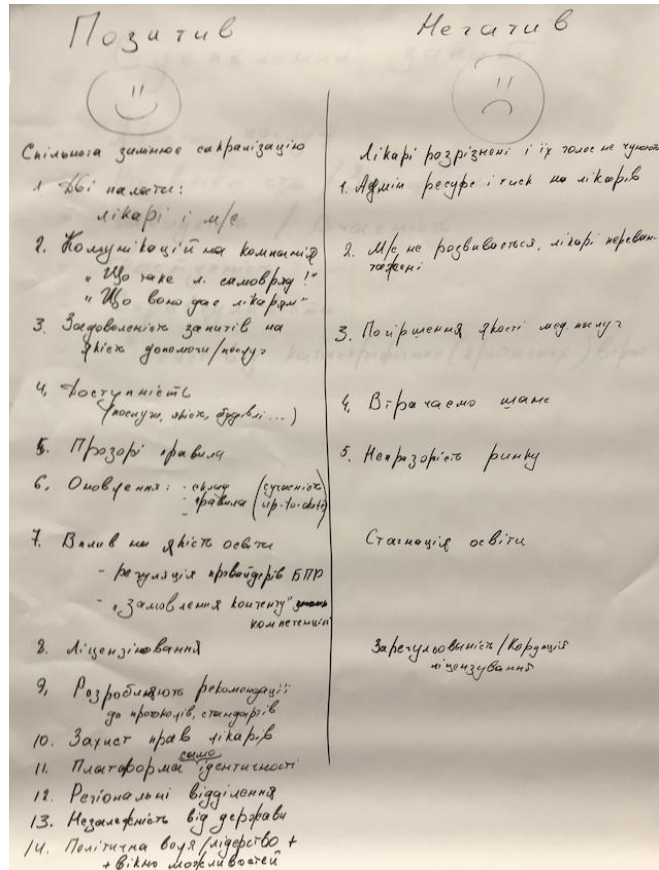 Позитив
Спільнота замінює сакралізацію
1 Дві палати:
лікарі і м/с
2. Комунікаційна компанія
"Що таке л. самовряд!"
"Що воно дає лікарям"
3. Задоволеність запитів на
якість допомоги/послуг
4. Доступність
(послуги, якість, будівлі...)
5. Прозорі правила
6. Оновлення: - склад (сучасність
- правила up-to-date)
-
7. Вплив на якість освіти
- регуляція провайдерів БПР
- "Замовлення контенту"
компетенцій
8. Ліцензіювання
9. Розробляють рекомендації
до протоколів, стандартів
10. Захист прав лікарів
само
11. Платформа ідентичності
12. Регіональні відділення
13. Незалежність від держави
14. Політична воля/лідерство +
+ вікно можливостей
Негатив
Лікарі розрізнені і їх голос не чують
1. Адмін ресурс і тиск на лікарів
2. М/с не розвивається, лікарі переван-
тажені
3. Погіршення якості мед. послуг
4. Втрачаємо шанс
5. Непрозорість ринку
Стагнація освіти
Зарегульованість/Корупція
ліцензування